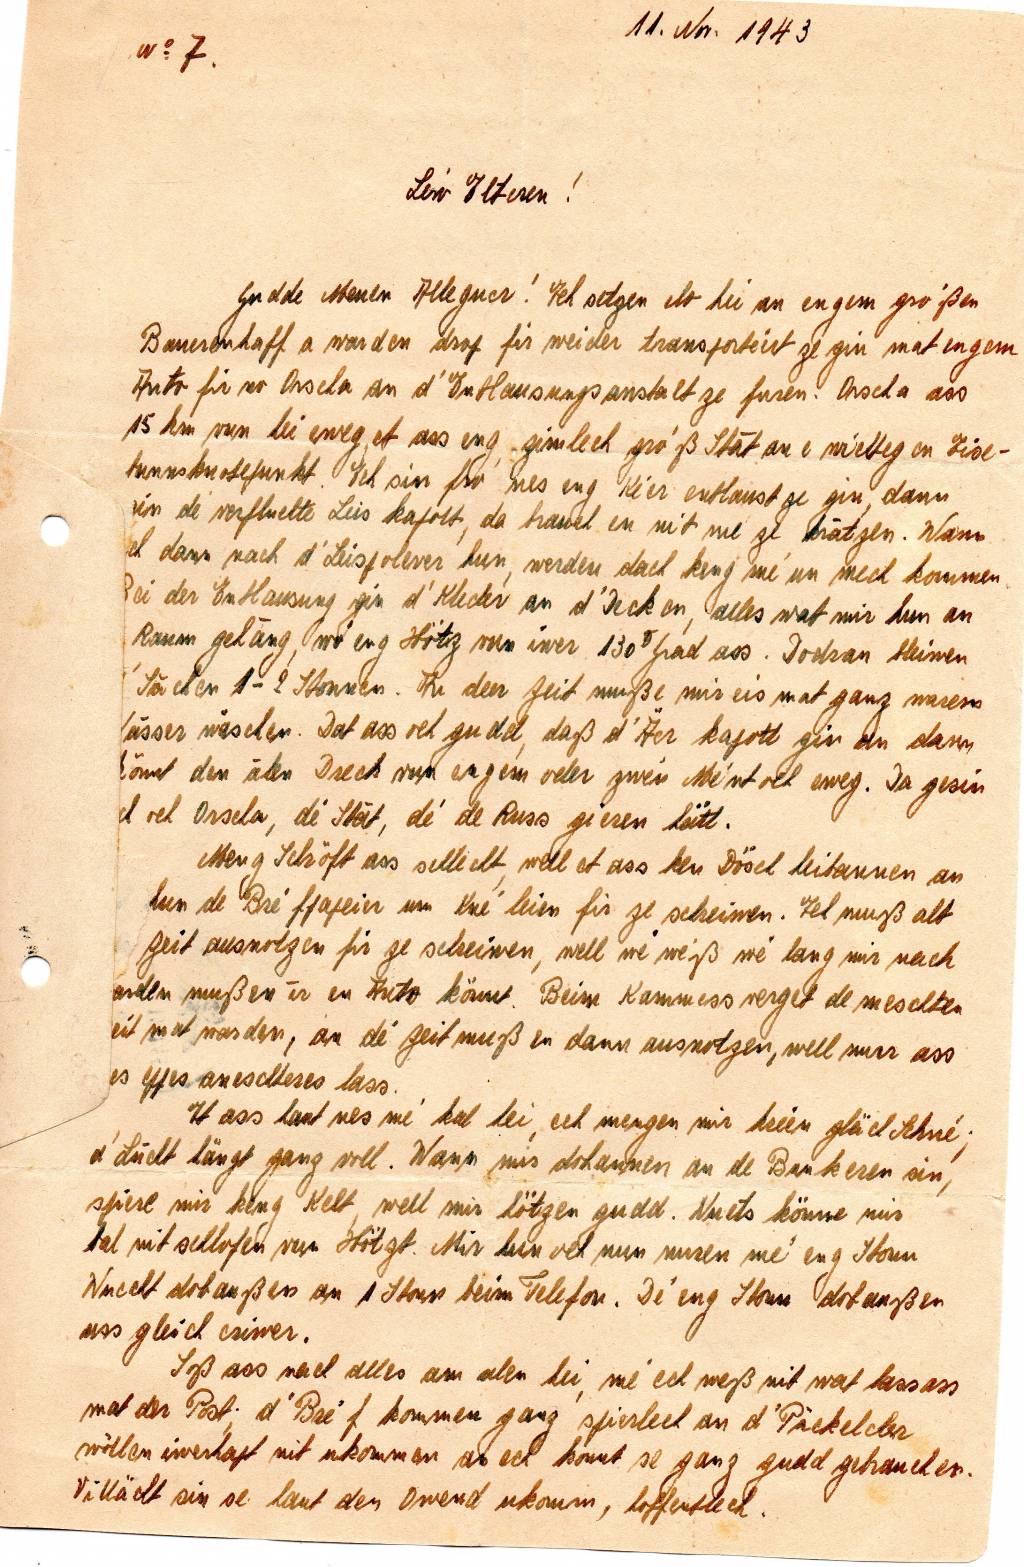 11. Nov. 1943
No 7.
Léiw Elteren!
Gudde Muen Alleguer! Ech setzen elo hei an engem gro'ßen
Bauerenhaff a warden drop fir weider transportéirt ze gin mat engem
Auto fir no Orscha an d'Entlausungsanstalt ze furen. Orscha ass
15 km vun hei eweg, et ass eng zimlech gro'ß Stāt an e wichtegen Eise-
bunnsknotepunkt. Ech sin fro' nes eng Kéer entlaust ze gin, dann
gin dé verfluchte Leis kapott, da brauch en nit me ze krätzen. Wann
ech dann nach d'Leispolever hun, werden dach keng mé un mech kommen.
Bei der Entlausung gin d'Kleder an d'Decken, alles wat mir hun an
Raum gehāng, wo' eng Hötzt vun iwer 130° Grad ass. Dodran bleiwen
d'Sāchen 1-2 Stonnen. An deer Zeit muße mir eis mat ganz warem
Wāsser wäschen. Dat ass och gudd, daß d'Äer kapott gin an dann
könnt den alen Dreck vun engem oder zwéin Méint och eweg. Da gesin
ech och Orscha, dé Stāt, dé de Russ gieren hätt.
Meng Schröft ass schlecht, well et ass ken Dösch heibannen an
hun de Bréfpapeier um Kné leien fir ze schreiwen. Ech muß all
Zeit ausnotzen fir ze schreiwen, well wé wéß wé lang mir nach
warden mußen ir en Auto könnt. Beim Kommess verget de meschten
Zeit mat warden, an dé Zeit muß en dann ausnotzen, well murr ass
es eppes aneschteres lass.
Et ass haut nes mé kal hei, ech mengen mir kréien gläch Schné;
d'Lucht hängt ganz voll. Wann mir dobannen an de Bunkeren sin,
spiere mir keng Kelt, well mir hötzen gudd. Nuets könne mir
bal nit schlofen vun Hötzt. Mir hun och nun nuren mé eng Stonn
Wuecht dobaußen an 1 Stonn beim Telefon. Dé eng Stonn dobaußen
ass gleich eriwer.
Soß ass nach alles am alen hei, mé ech weß nit wat lass ass
mat der Post; d'Bréf kommen ganz spierlech an d'Päckelcher
wöllen iwerhapt nit ukommen an ech könnt se ganz gudd gebrauchen.
Villächt sin se haut den Owend ukomm, hoffentlech.